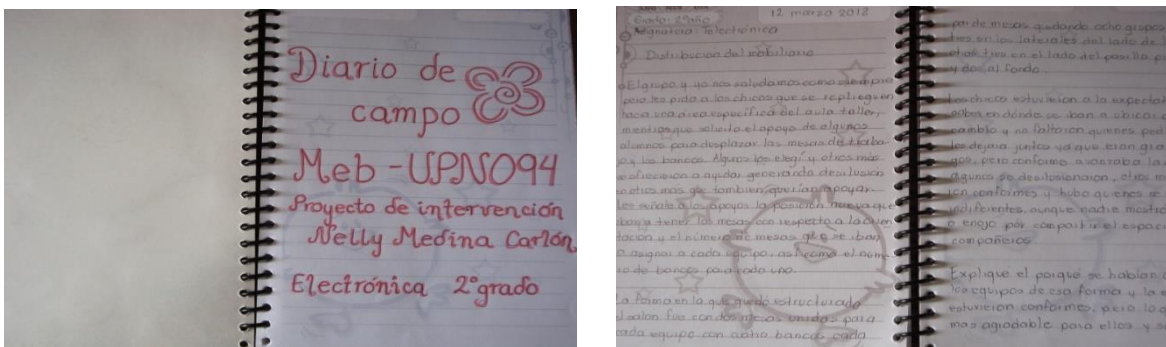 Diario de
campo
Meb-UPN094
Proyecto de intervención
Nelly Medina Carlón
Electrónica 2° grado
12 marzo 2012
Grado: 2° año
Asignatura: Telectrónica
Distribución del mobiliario
El grupo y yo nos saludamos como siempre
pero les pido a los chicos que se replieguen
hacia una área específica del aula taller,
mientras que solicito el apoyo de algunos
alumnos para desplazar las mesas de traba
jo y los bancos. Algunos los elegí y otros más
se ofrecieron a ayudar generando desilusión
en otros más que también querían apoyar.
Les señalé a los apoyos la posición nueva que
iban a tener las mesas con respecto a la orien
tación y el número de mesas que se iban
a asignar a cada equipo, así como el núme
ro de bancos para cada uno.
La forma en la que quedó estructurado
el salon fue con dos mesas unidas para
cada equipo con ocho bancos cada
par de mesas quedando ocho grupos
tres en los laterales del lado de
otras tres en el lado del pasillo
y dos al fondo.
Los chicos estuvieron a la expecta
saber en dónde se iban a ubicar
cambio y no faltaron quienes
los dejara juntos ya que eran
gos, pero conforme avanzaba la
algunos se desilusionaron, otros
ron conformes y hubo quienes se
indiferentes, aunque nadie mostró
o enojo por compartir el espacio
compañeros.
Explique el porqué se habían
los equipos de esa forma y
estuvieron conformes, pero
mas agradable para ellos y